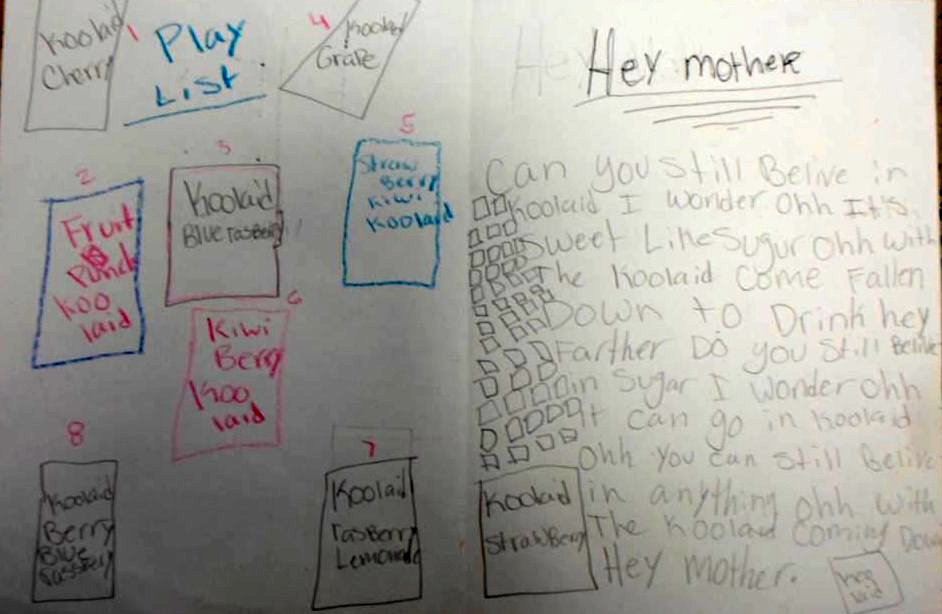 Koolaid
Cherry
1
Play
List.
4
Koolaid
Grape
2
Fruit
Punch
Koo
laid
3
Koolaid
Blue rasberry
5
Straw
Berry
Kiwi
Koolaid
6
Kiwi
Berry
Koo
laid
8
Koolaid
Berry
Blue
rassberry
7
Koolaid
rasBerry
Lemonade
Hey mothere
Can you Still Belive in
Koolaid I wonder Ohh It's
Sweet Like Sugur Ohh with
The Koolaid Come Fallen
Down to Drink hey
Farther Do you Still Belive
in Sugar I wonder ohh
It can go in Koolaid
Ohh you can Still Belive
in anything ohh with
The Koolaid Coming Down
Hey mother.
Koolaid
StrawBerry
koo
laid